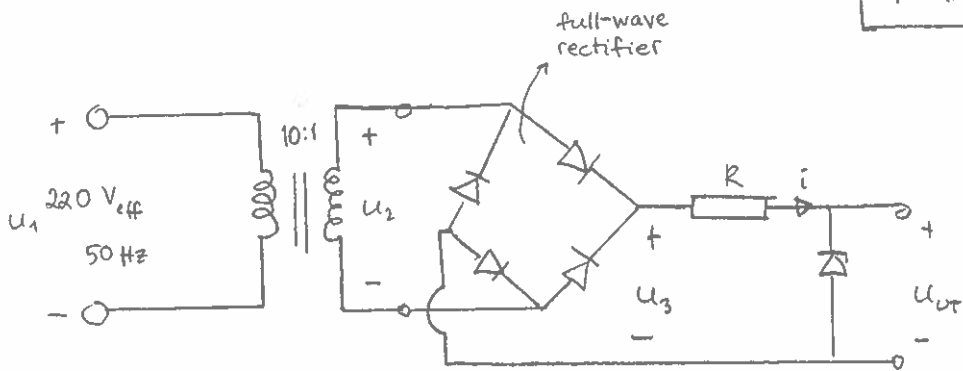 full-wave
rectifier
+
10:1
+
u₁
220 V_eff
50 Hz
u₂
R
i
+
+
u₃
U_UT
-
-
-
-